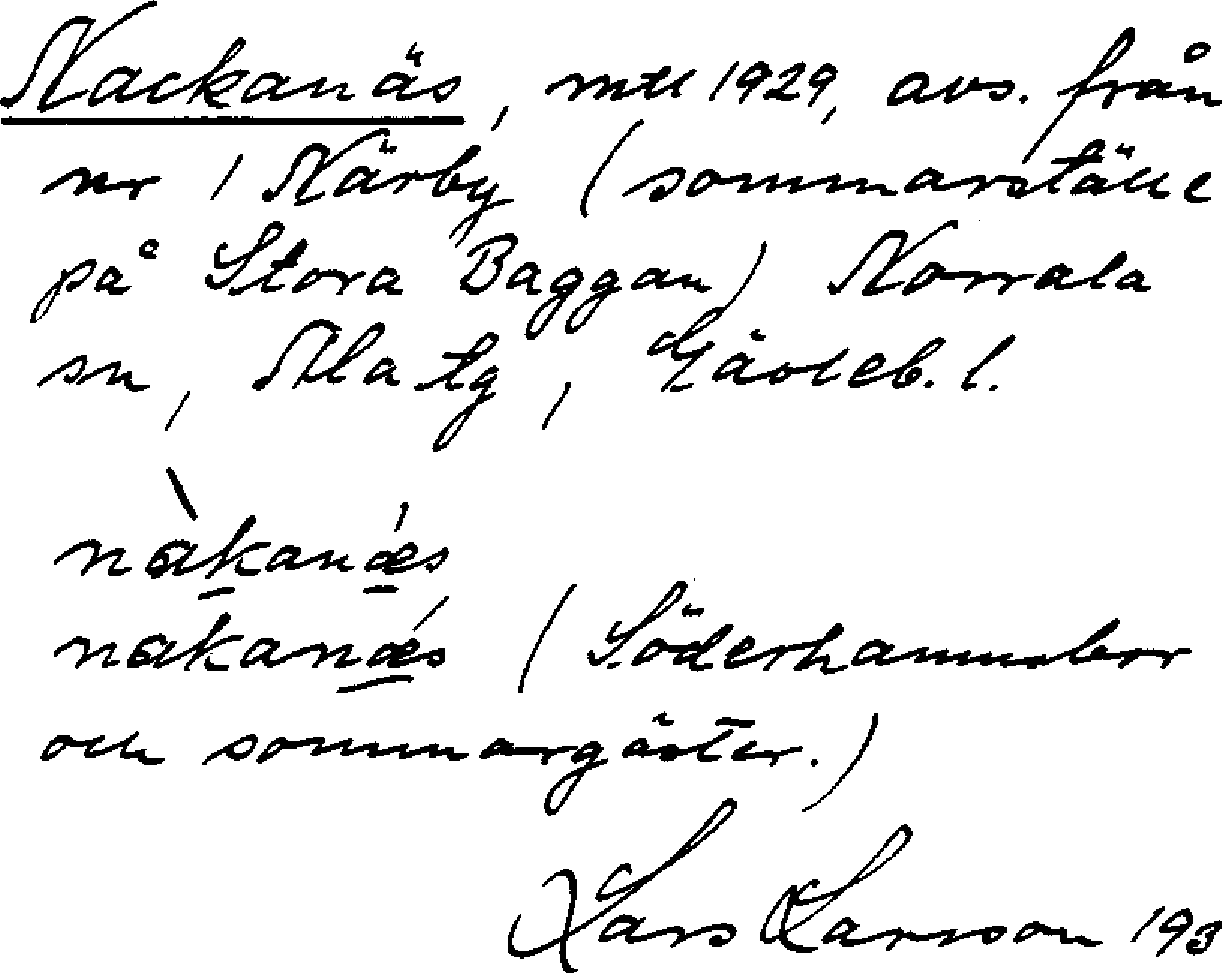 Nackanäs, mtl 1929, avs. från
nr 1 Närby (sommarställe
på Stora Baggan) Norrala
sn, Ala tg, Gävleb. l.
nàkanæ´s
nakanæ´s (Söderhamnsbor
och sommargäster.)
Lars Larsson 193